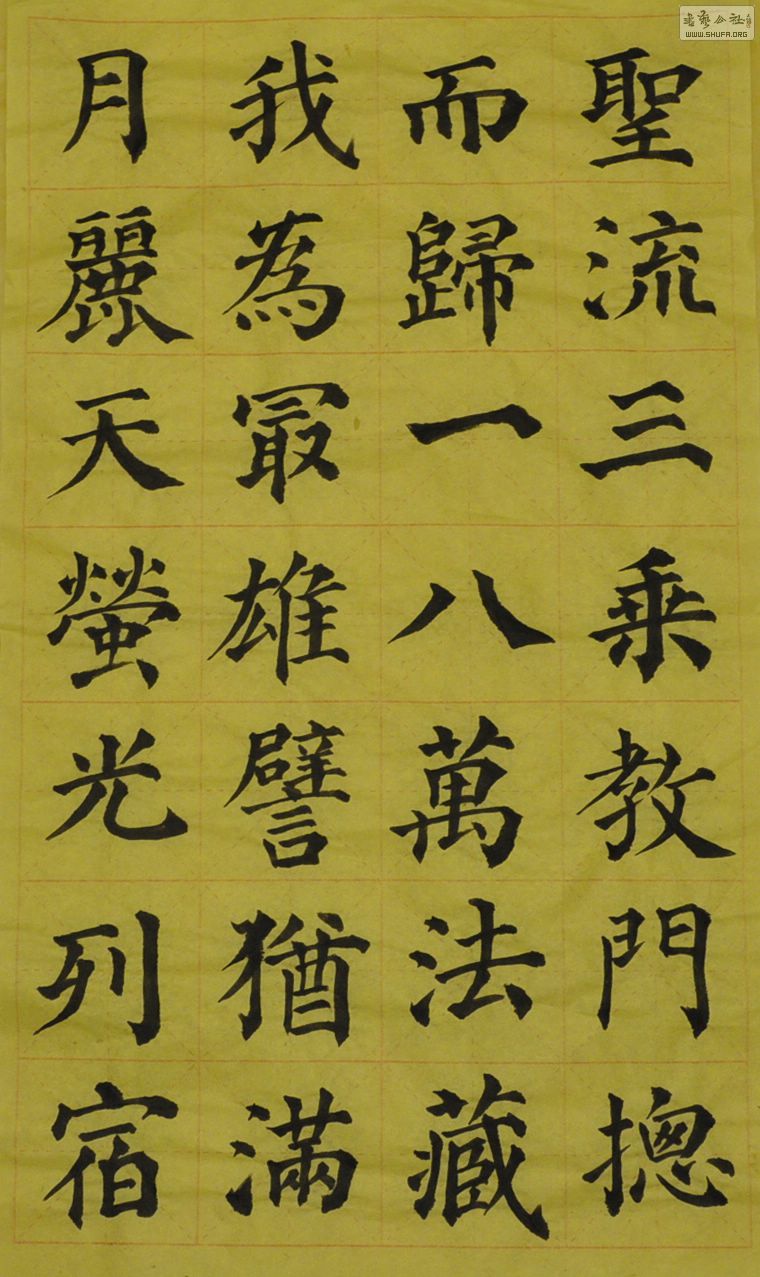 聖流三乗教門摠
而歸一八萬法藏
我為冣雄譬猶滿
月麗天螢光列宿
書藝公社
WWW.SHUFA.ORG